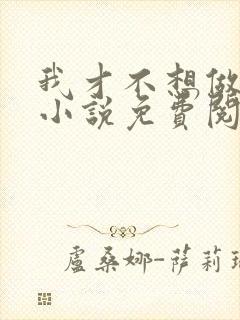 我才不想做
小說免費閱
盧桑娜-薩莉